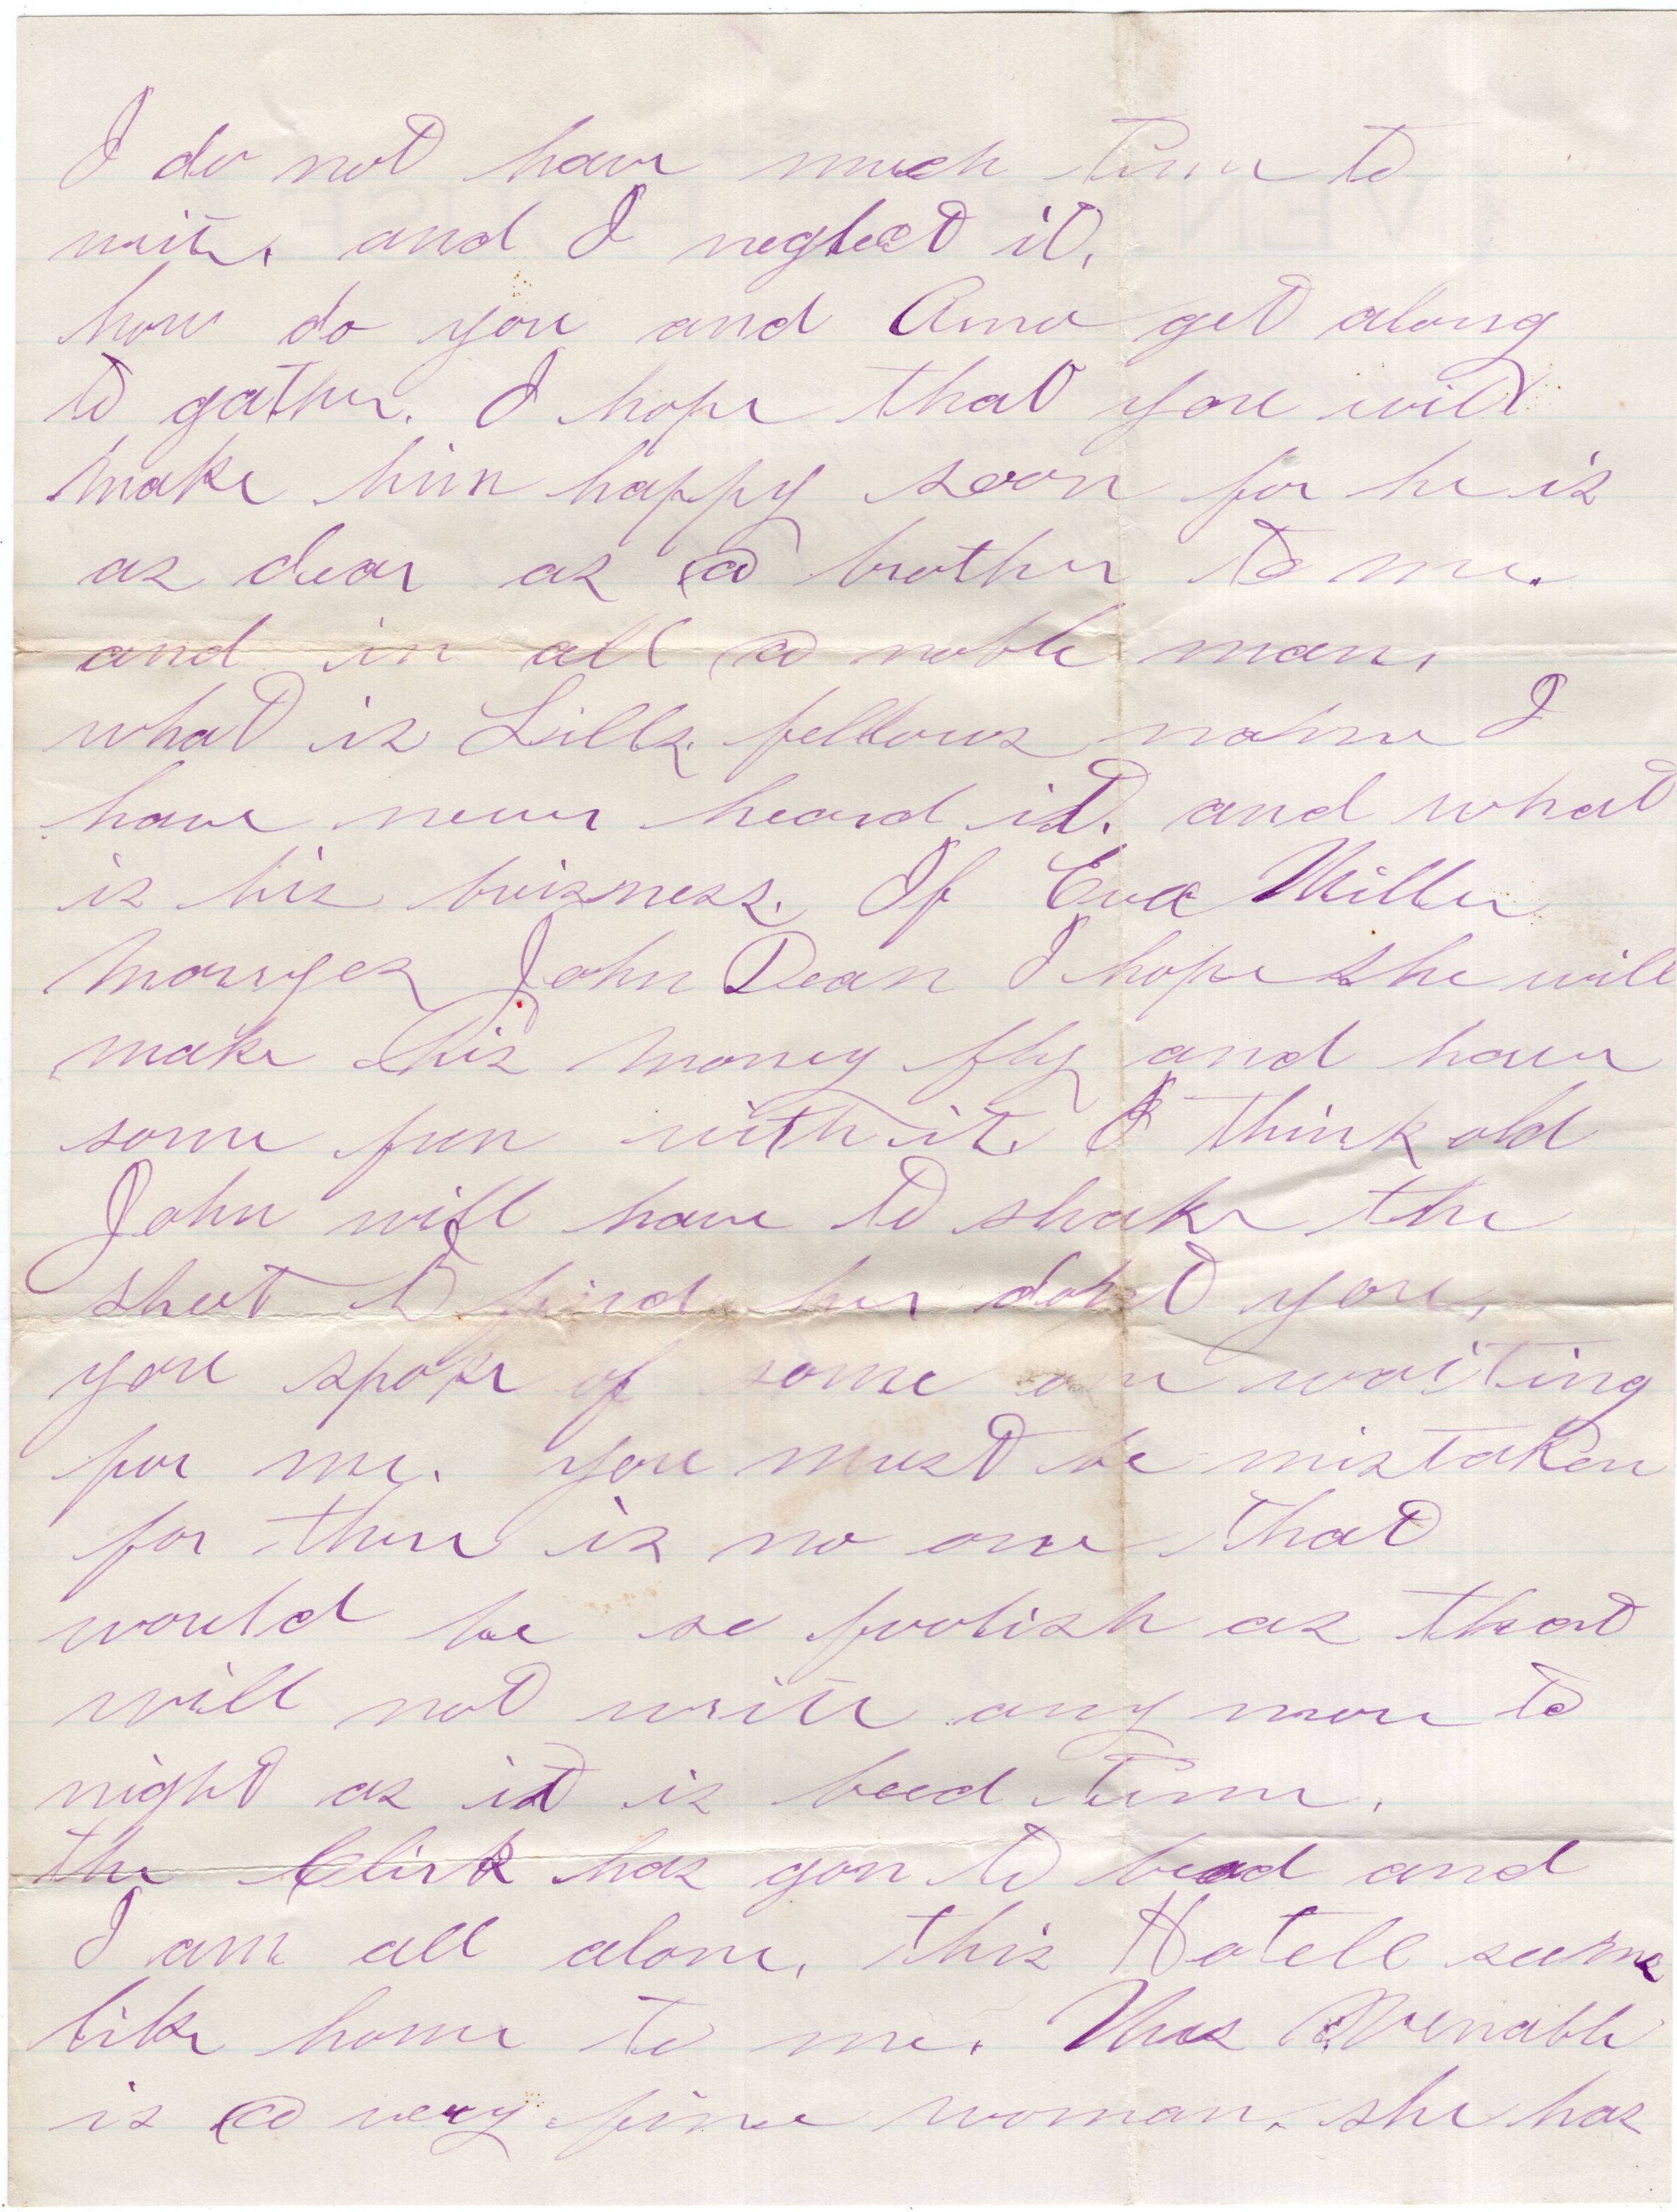 I do not have much time to
write. and I neglect it.
how do you and Amo get along
to gather. I hope that you will
make him happy soon for he is
as dear as a brother to me.
and in all a noble man.
what is Lills fellows name I
have never heard it. and what
is his buisness. If Eva Miller
marryes John Dean I hope she will
make his money fly and have
some fun with it. I think old
John will have to shake the
sheet to find her dont you,
you spoke of some one waiting
for me. you must be mistaken
for there is no one that
would be so foolish as that
will not write any more to
night as it is beed time.
the Clirk has gon to bead and
I am all alone. this Hotell seems
like home to me. Mrs Venable
is a very fine woman. she has